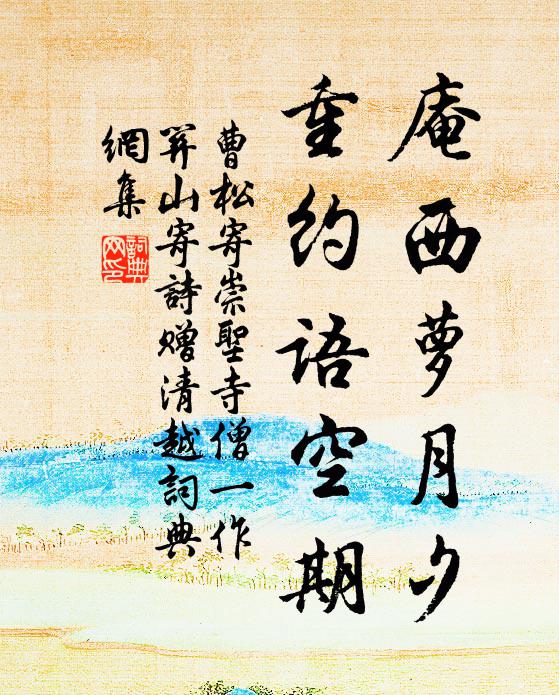 庵西萝月夕
重约語空期
曹松寄崇聖寺僧一作
羿山寄詩赠清越詞典
網集
詞典
网印